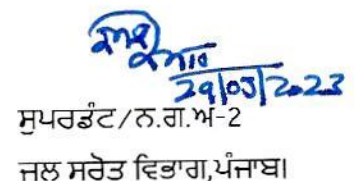 29/03/2023
ਸੁਪਰਡੰਟ/ਨ.ਗ.ਅ-2
ਜਲ ਸਰੋਤ ਵਿਭਾਗ,ਪੰਜਾਬ।